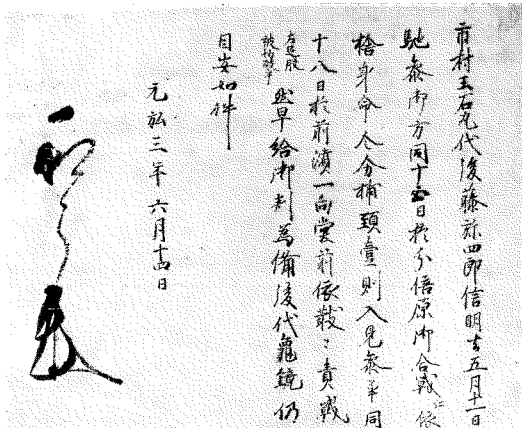 市村王石丸代後藤弥四郎信明去五月十一日
馳参御方同十五日於分倍原御合戦仁依
捨身命令分捕頸壹則入見参畢同
十八日於前濱一向堂前依散々責戦
右膝股被切破畢然早給御判為備後代龜鏡仍
目安如件
元弘三年六月十四日